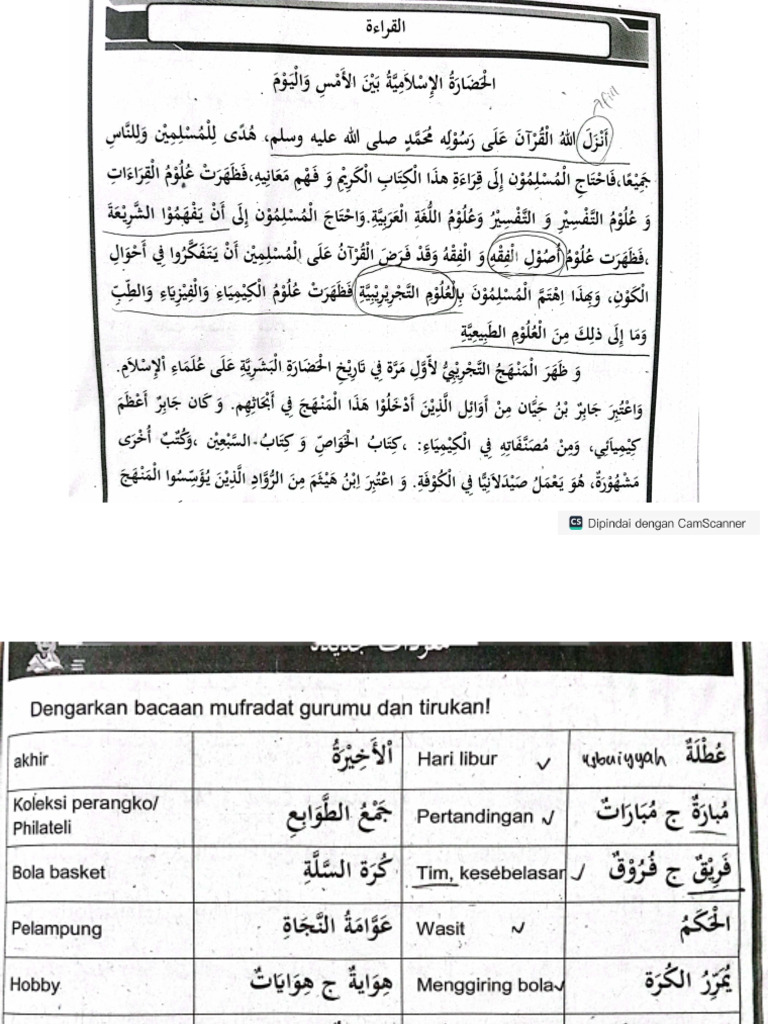 القراءة
الْحَضَارَةُ الإِسْلاَمِيَّةُ بَيْنَ الأَمْسِ وَالْيَوْمَ
أَنْزَلَ اللهُ الْقُرْآنَ عَلَى رَسُوْلِه مُحَمَّدٍ صلى الله عليه وسلم، هُدًى لِلْمُسْلِمِيْن وَلِلنَّاسِ
جَمِيْعًا،فَاحْتَاجِ الْمُسْلِمُوْن إِلَى قِرَاءَةِ هذَا الْكِتَابِ الْكَرِيْمِ وَ فَهْمِ مَعَانِيهِ،فَظَهَرَتْ عُلُومُ الْقِرَاءَاتِ
وَ عُلُومُ التَّفْسِيْرِ وَ التَّفْسِيْرُ وَعُلُومُ اللُّغَةِ الْعَرَبِيَّةِ.وَاحْتَاجَ الْمُسْلِمُوْن إِلَى أَنْ يَفْهَمُوا الشَّرِيْعَةَ
،فَظَهَرَت عُلُومُ أُصُوْلِ الْفِقْهِ وَ الْفِقْهُ وَقَدْ فَرَضَ الْقُرْآنُ عَلَى الْمُسْلِمِيْن أَنْ يَتَفَكَّرُوا فِي أَحْوَالِ
الْكَوْنِ، وَبِهذَا اِهْتَمَّ الْمُسْلِمُوْنَ بِالْعُلُوْمِ التَّجْرِيْرِيْبِيَّةِ فَظَهَرَتْ عُلُومُ الْكِيْمِيَاءِ وَالْفِيْزِيَاءِ وَالطِّبِّ
وَمَا إِلَى ذلِكَ مِنَ الْعُلُوْمِ الطَّبِيعِيَّةِ
وَ ظَهَرَ الْمَنْهَجُ التَّجْرِيْبِيُّ لأَوَّلِ مَرَّة فِي تَارِيْخِ الْحَضَارَةِ الْبَشَرِيَّةِ عَلَى عُلَمَاءِ الإِسْلاَمِ.
وَاعْتُبِرَ جَابِرُ بْنُ حَيَّان مِنْ أَوَائِل الَّذِيْنَ أَدْخَلُوْا هَذَا الْمَنْهَجَ فِي أَبْحَاثِهِم. وَ كَان جَابِرُ أَعْظَمَ
كِيْمِيَائِي، وَمِنْ مُصَنَّفَاتِهِ فِي الْكِيْمِيَاءِ: ،كِتَابُ الْخَوَاصِّ وَ كِتَابُ السَّبْعِيْن ،وَكُتُبٌ أُخْرَى
مَشْهُوْرَةٌ، هُوَ يَعْمَلُ صَيْدَلاَنِيًّا فِي الْكُوْفَةِ. وَ اعْتُبِرَ اِبْنُ هَيْثَمَ مِنَ الرُّوَّادِ الَّذِيْنَ يُؤَسِّسُوا الْمَنْهَجَ
CS Dipindai dengan CamScanner
مفردات جديدة
Dengarkan bacaan mufradat gurumu dan tirukan!
akhir اْلأَخِيْرَةُ Hari libur عُطْلَةٌ
Koleksi perangko/
Philateli جَمْعُ الطَّوَابِعِ Pertandingan مُبارَةٌ ج مُبَارَاتٌ
Bola basket كُرَة السَّلَّةِ Tim, kesebelasan فَرِيْقٌ ج فُرُوْقٌ
Pelampung عَوَّامَةُ النَّجَاةِ Wasit الْحَكَمُ
Hobby هِوَايةٌ ج هِوَايَاتٌ Menggiring bola يُمَرِّرُ الكُرَة